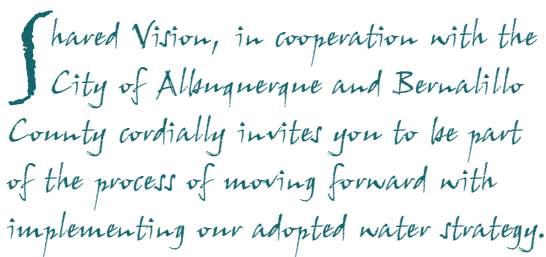 Shared Vision, in cooperation with the
City of Albuquerque and Bernalillo
County cordially invites you to be part
of the process of moving forward with
implementing our adopted water strategy.